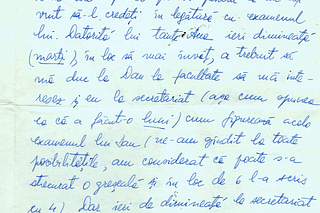 vrut să-l credeți, în legătură cu examenul
lui. Datorită lui tanti Ana ieri dimineață
(marți), în loc să mai învăț, a trebuit să
mă duc la Dan la facultate să mă inte-
resez și eu la secretariat (așa cum spunea
ea că a făcut-o luni) cum figurează acolo
examenul lui Dan (ne-am gîndit la toate
posibilitățile, am considerat că poate s-a
strecurat o greșeală și în loc de 6 l-a scris
cu 4) Dar ieri de dimineață la secretariat